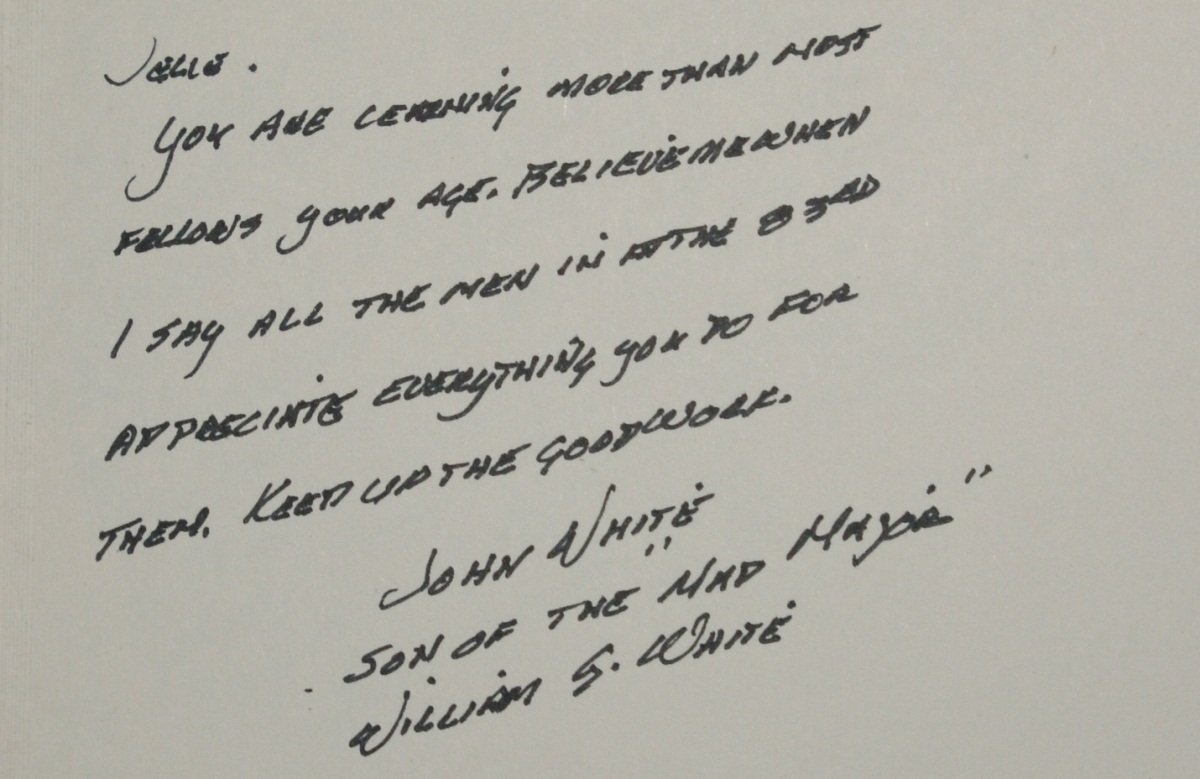 Jelle.
You are learning more than most
fellows your age. Believe me when
I say all the men in the 83rd
appreciate everything you do for
them. Keep up the good work.
John White
Son of the "Mad Major"
William G. White